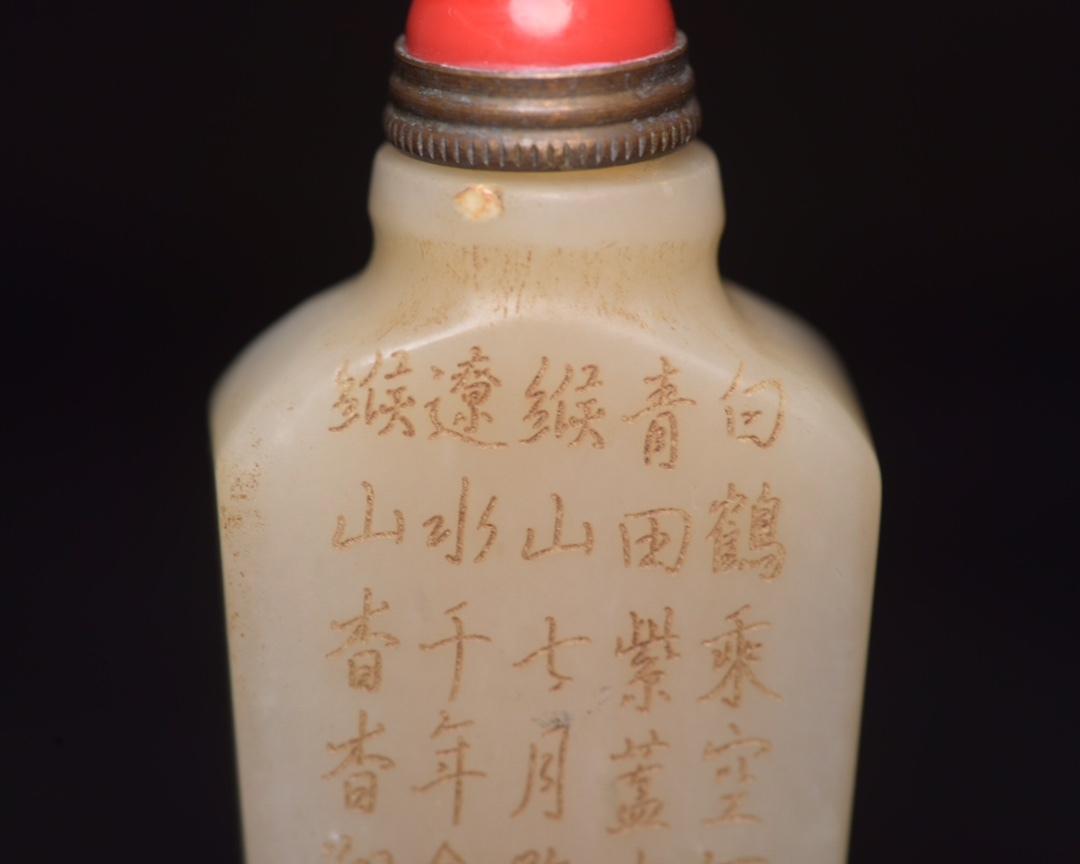 白鶴乘空
青田紫蓋
緱山七月
遼水千年
緱山杳杳